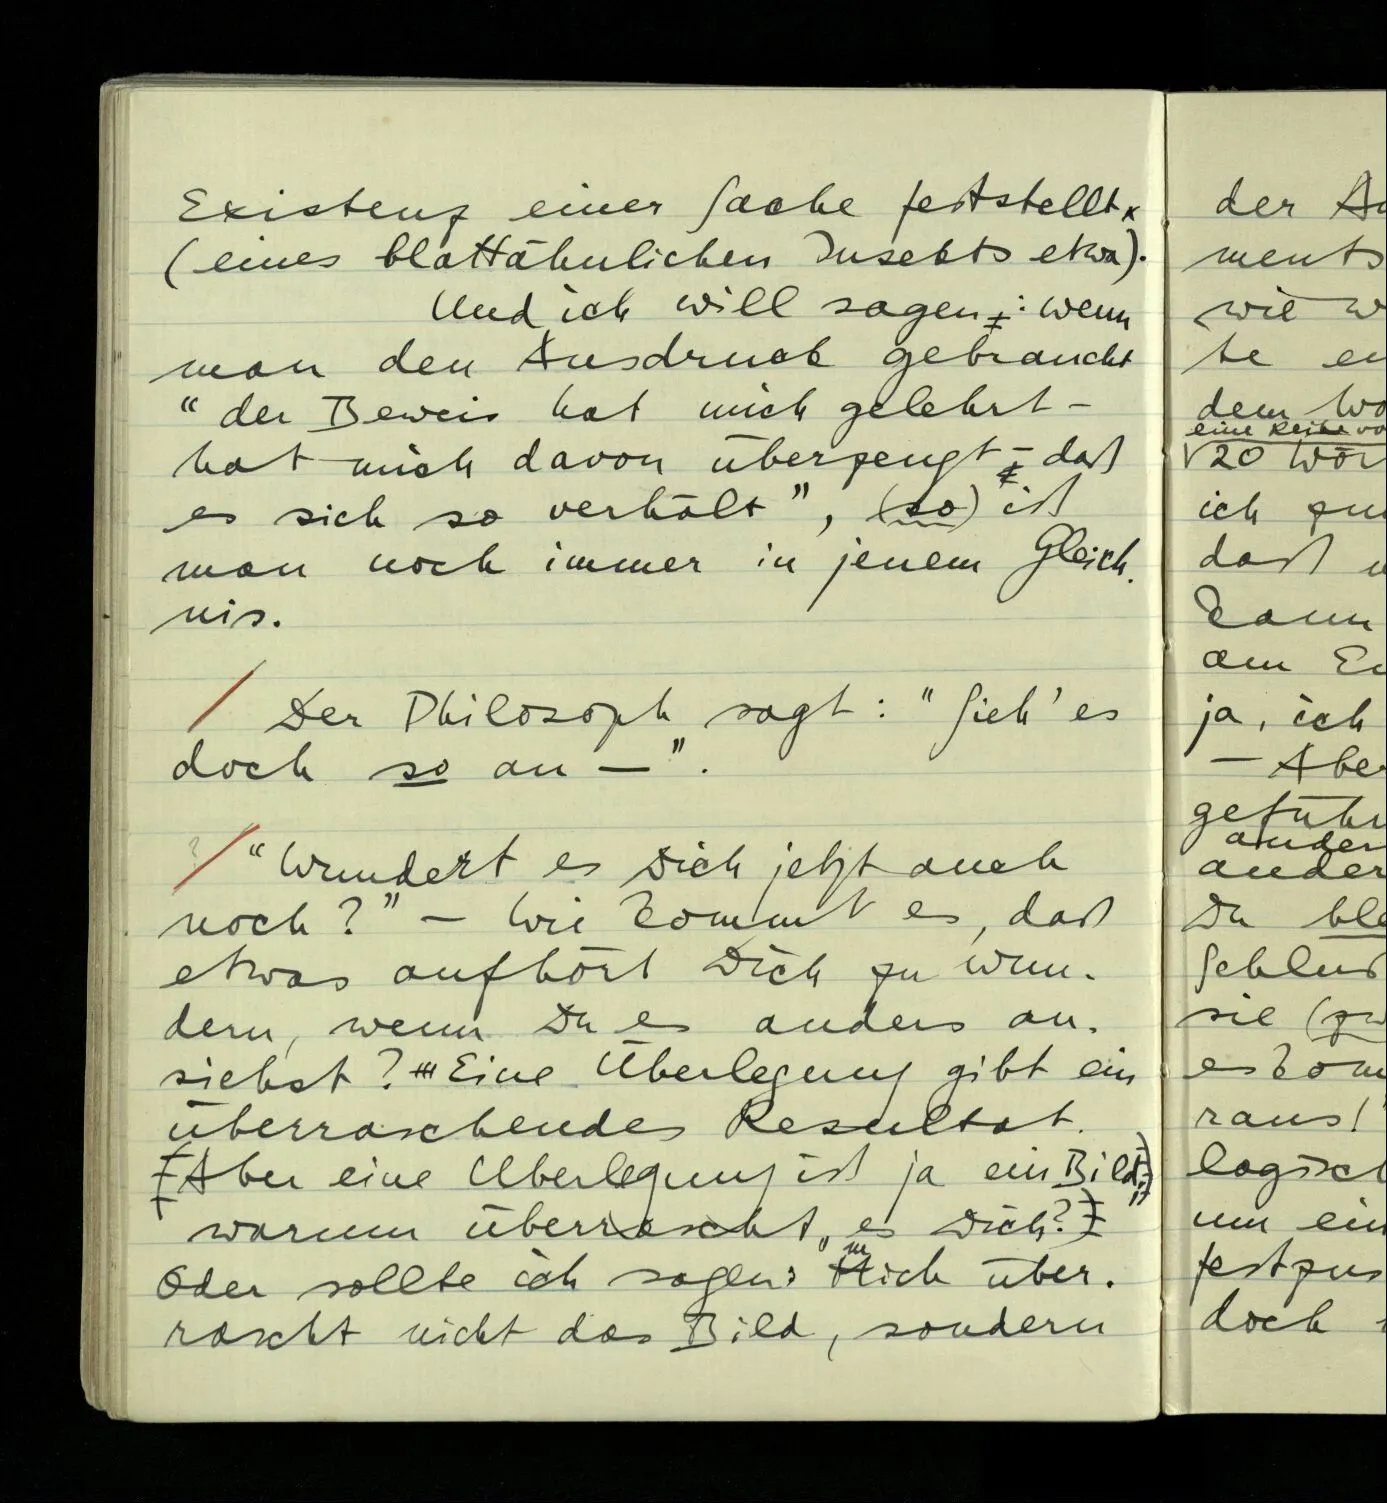 Existenz einer Sache feststellt
(eines blattähnlichen Insekts etwa).
Und ich will sagen: wenn
man den Ausdruck gebraucht
“der Beweis hat mich gelehrt –
hat mich davon überzeugt – daß
es sich so verhält”, (so) ist
man noch immer in jenem Gleich-
nis.
/ Der Philosoph sagt: “Sieh' es
doch so an –”.
? / “Wundert es Dich jetzt auch
noch?” – Wie kommt es, daß
etwas aufhört Dich zu wun-
dern, wenn Du es anders an-
siehst? Eine Überlegung gibt ein
überraschendes Resultat.
Aber eine Überlegung ist ja ein Bild;
warum überrascht es Dich?
Oder sollte ich sagen: „mich über-
rascht nicht das Bild, sondern
der
ments
wie
te
dem
eine Reihe
20
ich
daß
kann
am
ja, ich
– Aber
geführ
ander
ander
Du
Schluß
sie
es kom
raus!
logisch
um ein
festzus
doch